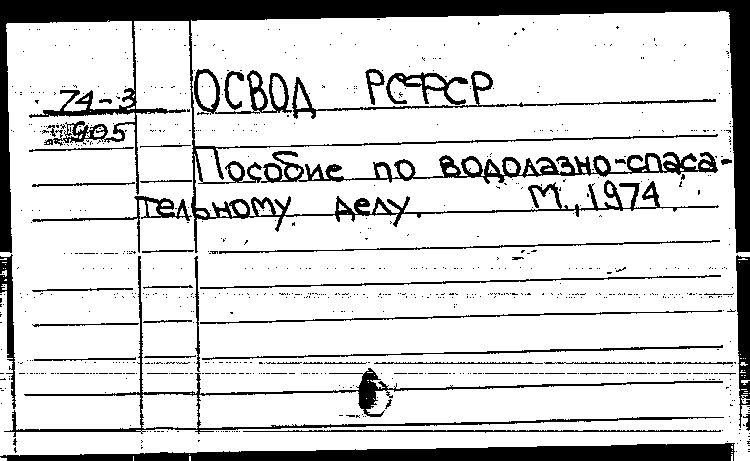 74-3 ОСВОД РСФСР
905
Пособие по водолазно-спаса-
тельному делу. М., 1974.